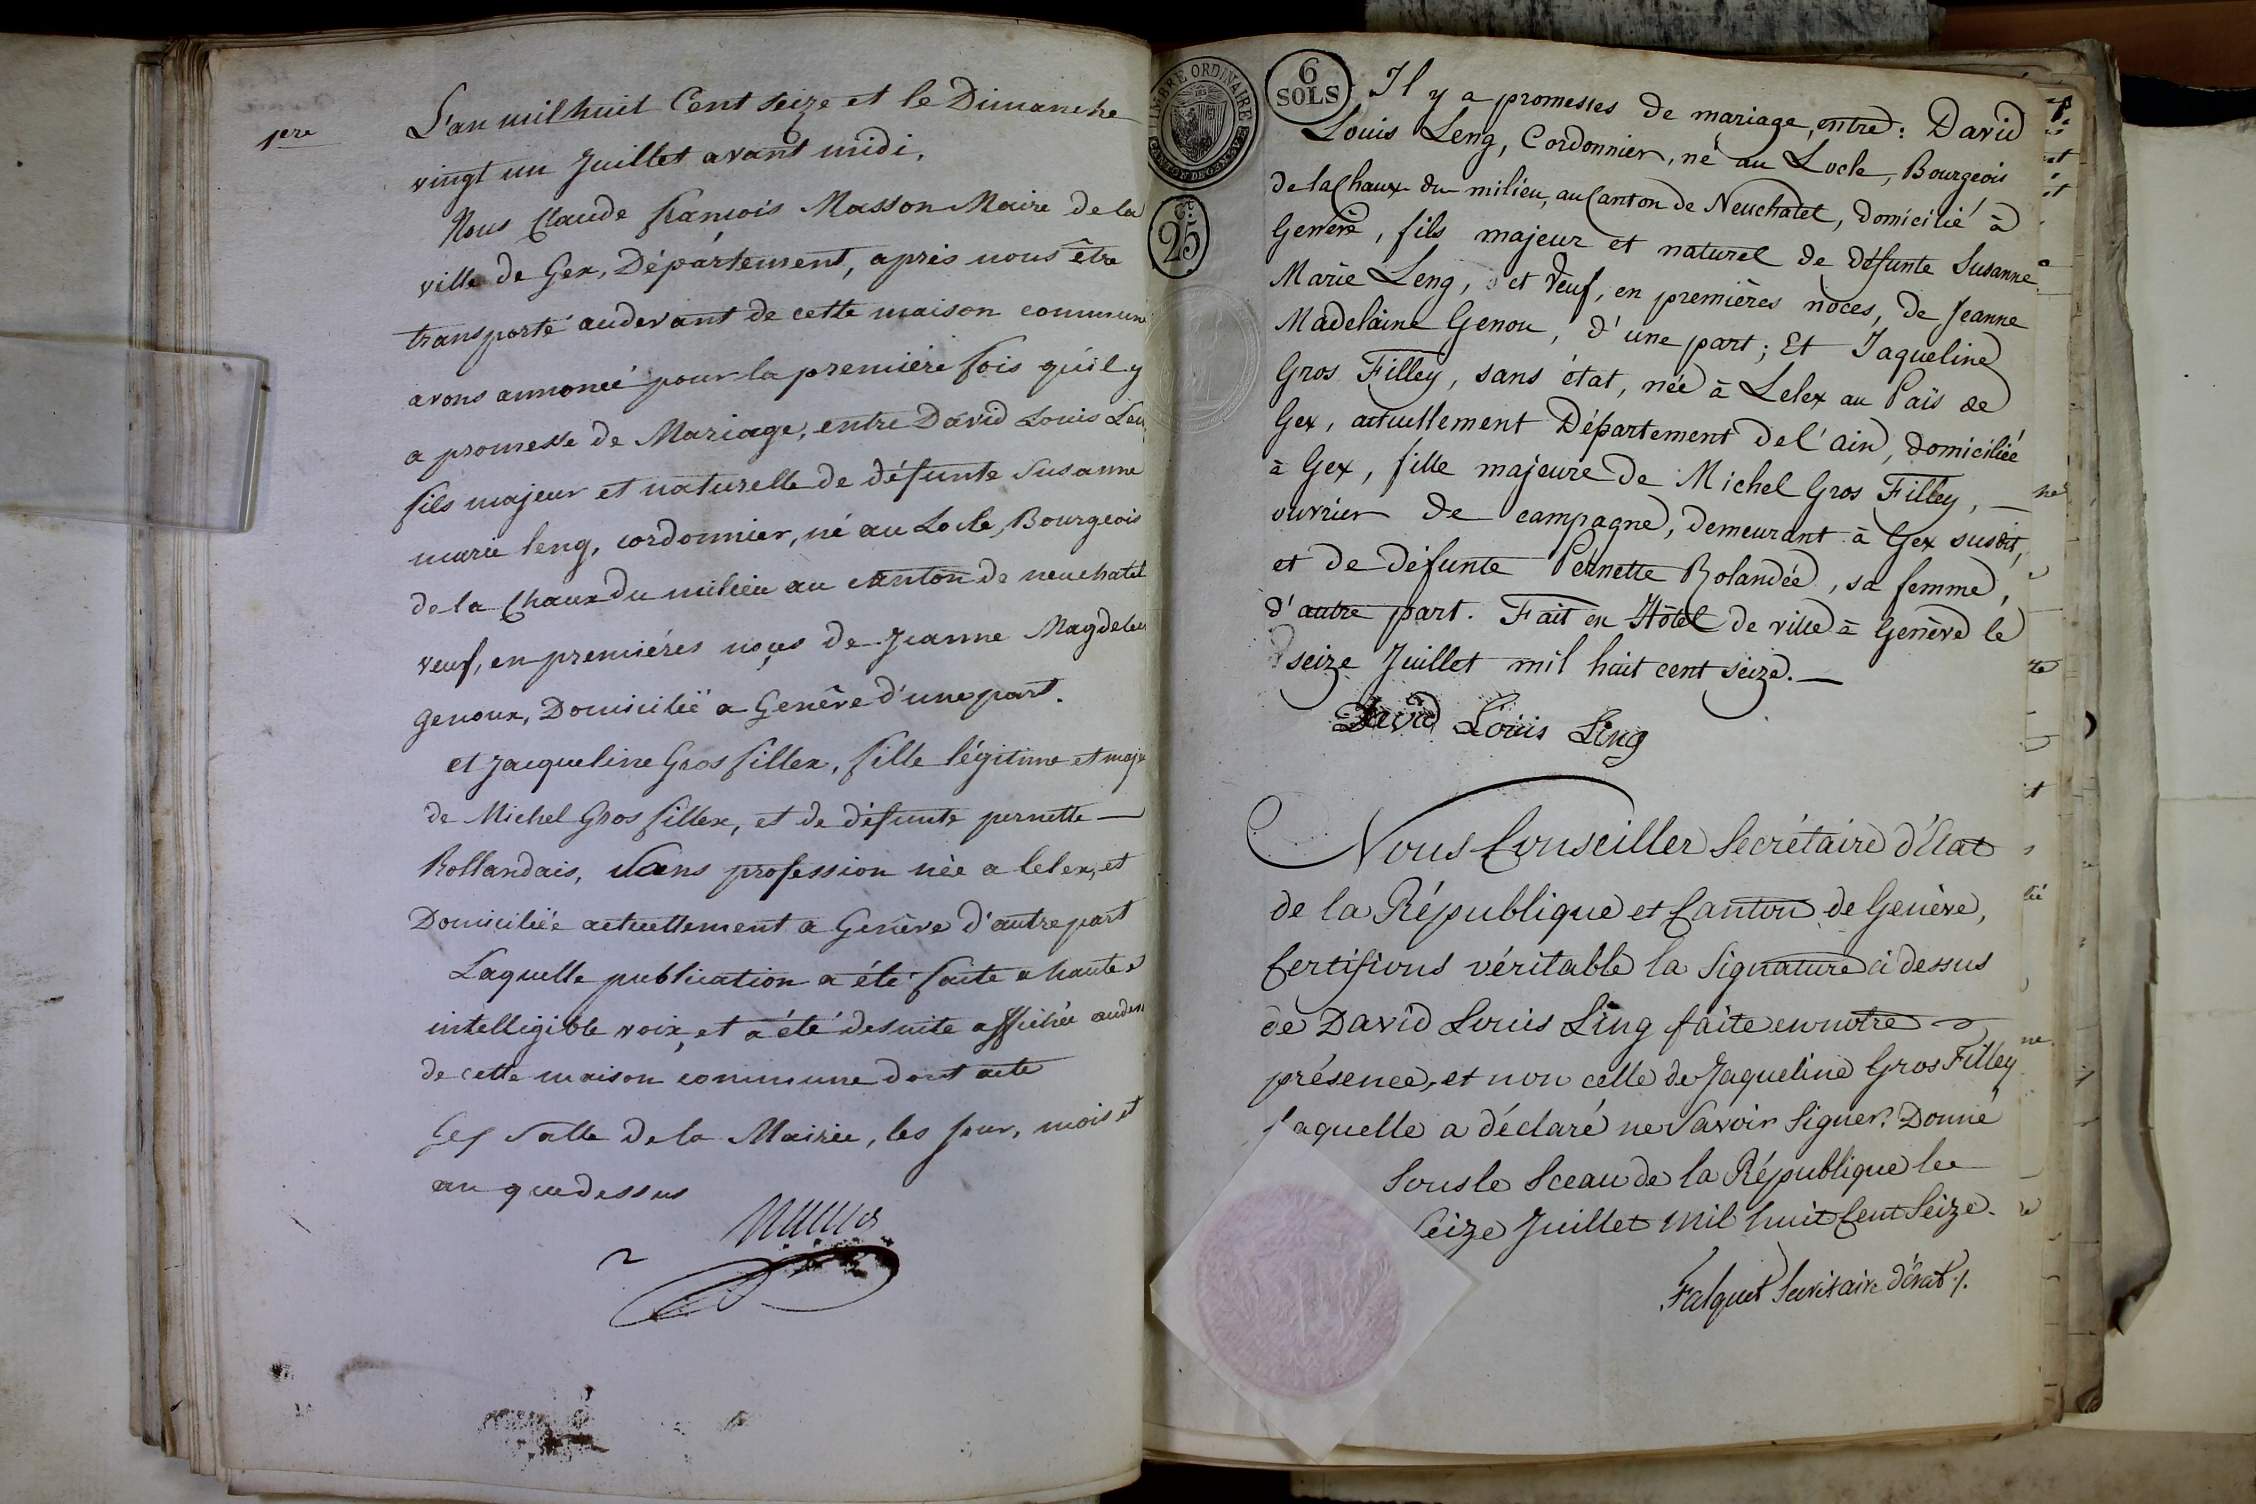 1ere
L'an mil huit Cent seize et le Dimanche
vingt un Juillet avant midi.
Nous Claude francois Masson Maire de la
ville de Gex, Département, après nous être
transporté audevant de cette maison commune
avons annoncé pour la première fois qu'il y
a promesse de Mariage, entre David Louis
fils majeur et naturelle de défunte Susanne
marie leng, cordonnier, né au Locle, Bourgeois
de la Chaux du milieu au canton de neuchatel
veuf, en premiéres noçes de Jeanne
genoux, Domicilié a Genêve d'une part.
et Jacqueline Gros fillex, fille légitime et
de Michel Gros fillex, et de défunte pernette
Rollandais, Sans profession née a lelex, et
Domiciliée actuellement a Genêve d'autre part
Laquelle publication a été faite a haute
intelligible voix, et a été desuite affichée
de cette maison commune dont acte
Gex Salle de la Mairie, les jour, mois et
an que dessus
TIMBRE ORDINAIRE
CANTON DE GENEVE
6
SOLS
25
Il y a promesses de mariage, entre: David
Louis Leng, Cordonnier, né au Locle, Bourgeois
de la Chaux du milieu, au Canton de Neuchatel, domicilié à
Genève, fils majeur et naturel de défunte Susanne
Marie Leng, et veuf, en premières noces, de Jeanne
Madelaine Genou, d'une part; Et Jaqueline
Gros Filley, sans état, née à Lelex au Païs de
Gex, actuellement Département de l'ain, domiciliée
à Gex, fille majeure de Michel Gros Filley,
ouvrier de campagne, demeurant à Gex susdit,
et de défunte Pernette Rolandée, sa femme,
d'autre part. Fait en Hôtel de ville à Genève le
seize Juillet mil huit cent seize.
David Louis Ling
Nous Conseiller Secrétaire d'Etat
de la République et Canton de Genève,
Certifions véritable la Signature ci dessus
de David Louis Ling faite en notre
présence, et non celle de Jaqueline Gros Filley
laquelle a déclaré ne Savoir Signer. Donné
Sous le Sceau de la République le
Seize Juillet mil huit Cent Seize.
Falquet Secrétaire d'état